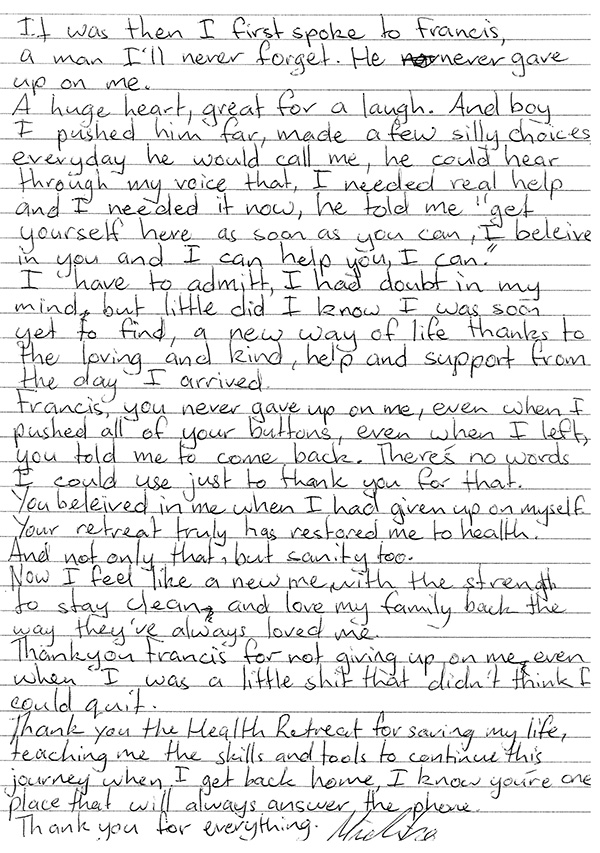 It was then I first spoke to Francis,
a man I'll never forget. He never gave
up on me.
A huge heart, great for a laugh. And boy
I pushed him far, made a few silly choices
everyday he would call me, he could hear
through my voice that, I needed real help
and I needed it now, he told me "get
yourself here as soon as you can, I beleive
in you and I can help you, I can."
I have to admitt, I had doubt in my
mind, but little did I know I was soon
yet to find, a new way of life thanks to
the loving and kind, help and support from
the day I arrived.
Francis, you never gave up on me, even when I
pushed all of your buttons, even when I left,
you told me to come back. There's no words
I could use just to thank you for that.
You beleived in me when I had given up on myself
Your retreat truly has restored me to health.
And not only that, but sanity too.
Now I feel like a new me, with the strength
to stay clean, and love my family back the
way they've always loved me.
Thankyou Francis for not giving up on me, even
when I was a little shit that didn't think I
could quit.
Thank you the Health Retreat for saving my life,
teaching me the skills and tools to continue this
journey when I get back home, I know you're one
place that will always answer the phone.
Thank you for everything.